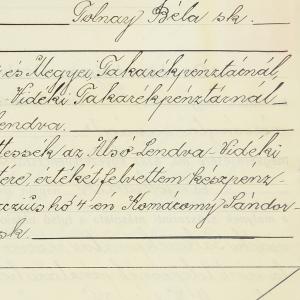 Tolnay Béla sk.
és Megyei Takarékpénztárnál,
Vidéki Takarékpénztárnál
lendva.
tessék az Alsó-Lendva-Vidéki
értékét felvettem készpénz-
hó 4-en Komáromy Sándor
sk